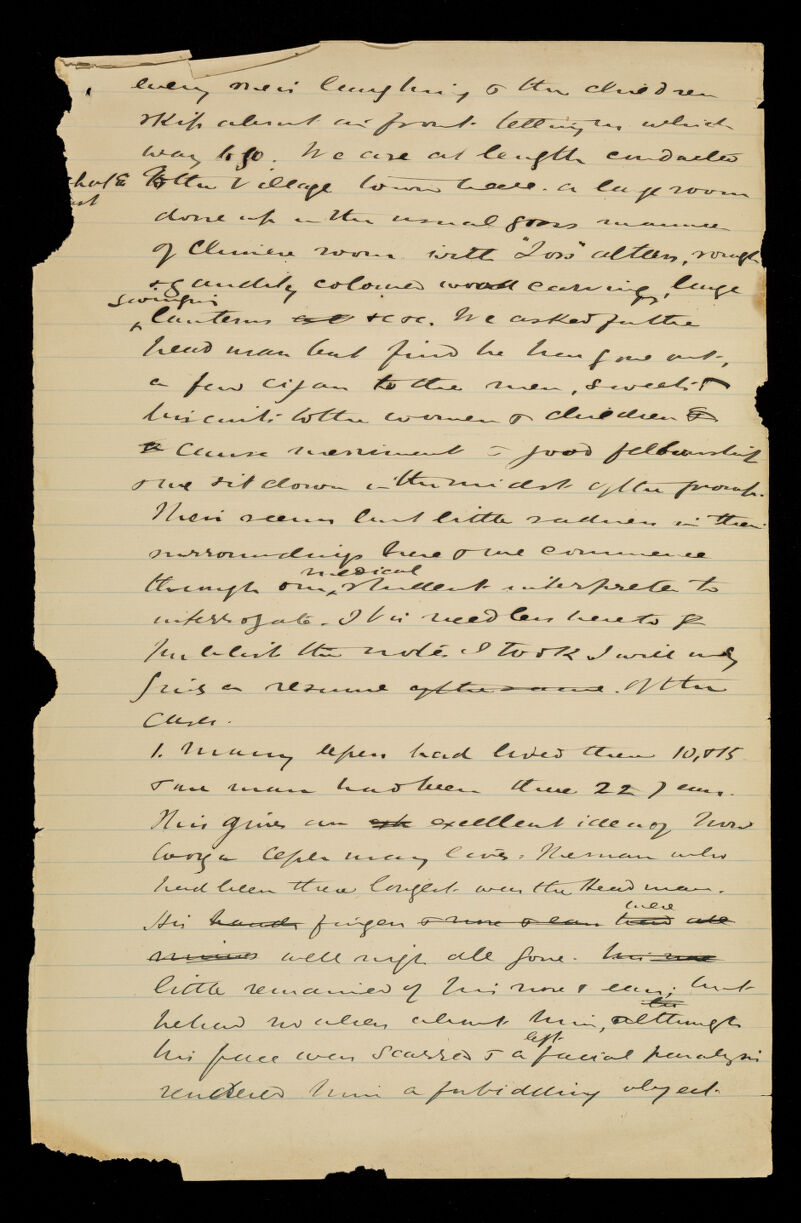 every one is laughing & the children
skip about in front telling us which
way to go. We are at length conducted
to the Village town hall. a large room
done up in the usual gross manner
of Chinese room with "Joss" alters, rough
& gaudily coloured wood carvings, large
swinging
lanterns &c &c. We asked for the
head man but find he has gone out,
a few cigars to the men, sweets &
biscuits to the women & children
cause merriment & good fellowship
& we sit down in the midst of the group.
There seems but little sadness in their
surroundings here & we commence
medical
through our student interpreter to
interrogate. It is needless here to
publish the notes I took I will only
give a resume of the same. Of the
cases.
1. Many lepers had lived there 10, & 15
& one man had been there 22 years.
This gives an excellent idea of how
long a leper may live. The man who
had been there longest was the Head man.
were
His hands fingers & nose & ears had all
well nigh all gone. his nose
little remained of his nose & ears; but
he had no ulcers about him, although
left
his face was scarred & a facial paralysis
rendered him a forbidding object.